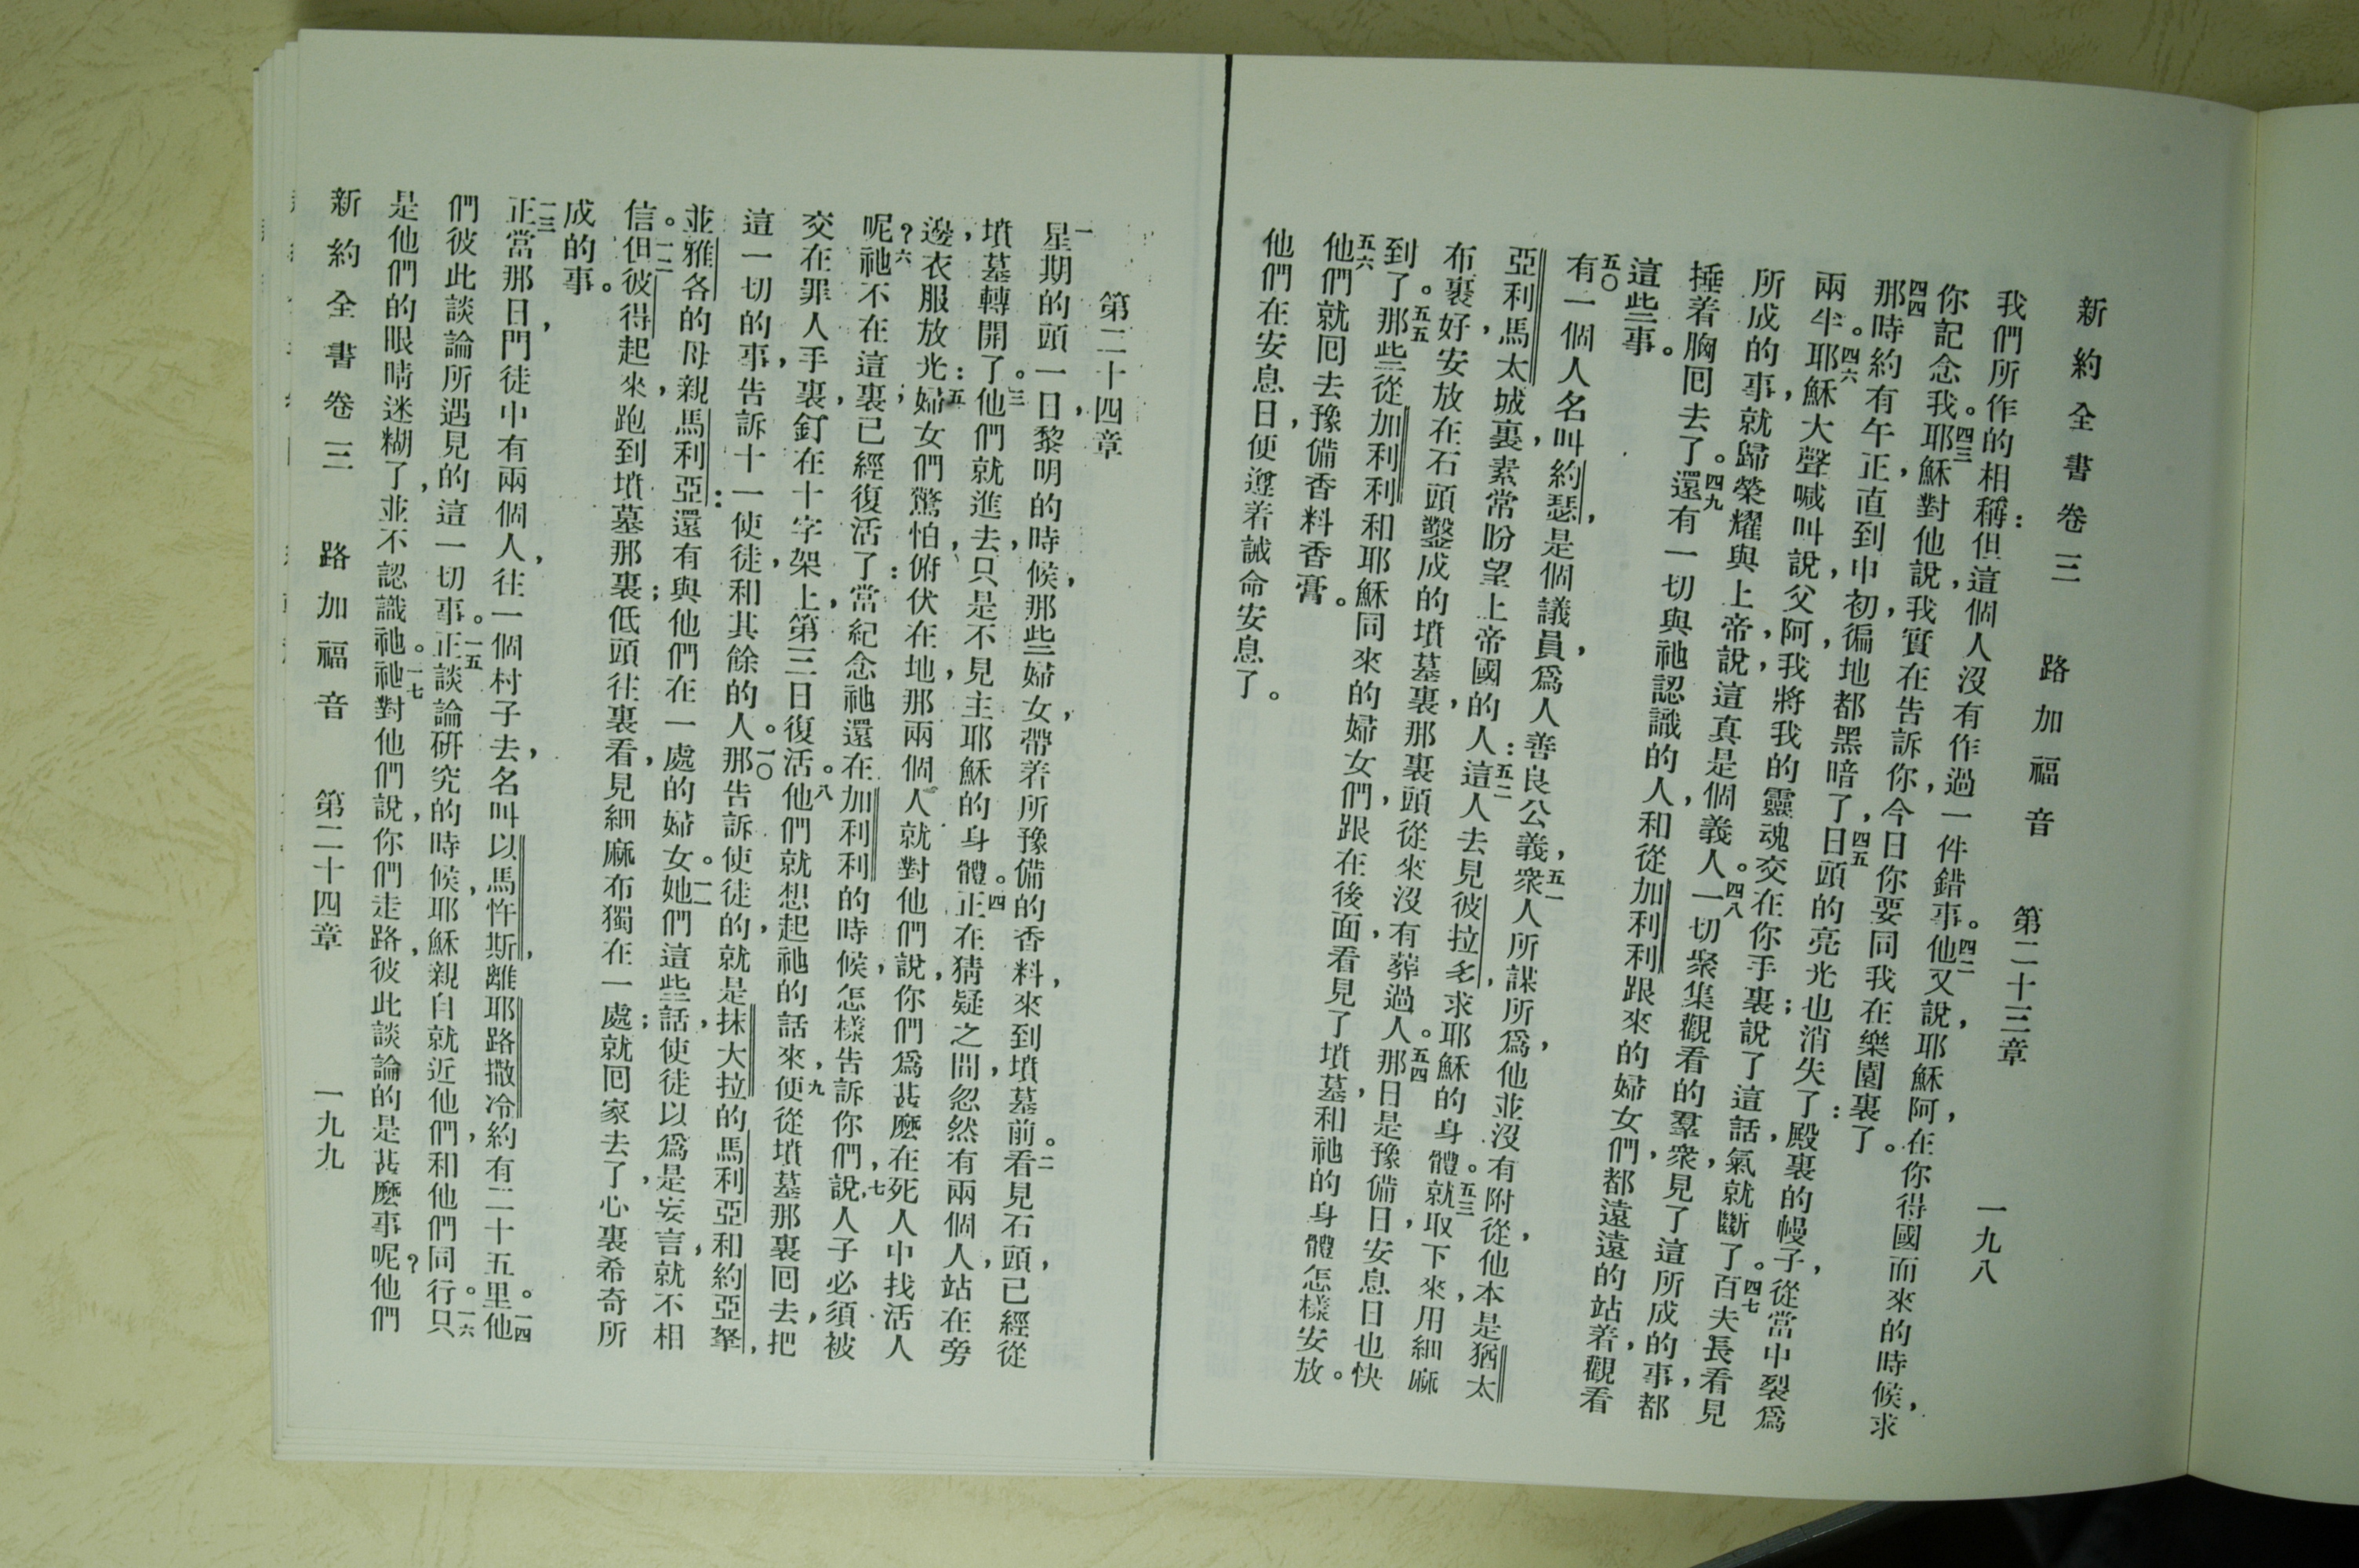 新約全書卷三 路加福音 第二十三章 一九八
我們所作的相稱:但這個人,沒有作過一件錯事。四二他又說,耶穌阿,在你得國而來的時候,求
你記念我。四三耶穌對他說,我實在告訴你,今日你要同我在樂園裏了。
四四那時約有午正,直到申初,徧地都黑暗了,四五日頭的亮光也消失了:殿裏的幔子,從當中裂爲
兩半。四六耶穌大聲喊叫說,父阿,我將我的靈魂交在你手裏;說了這話,氣就斷了。四七百夫長看見
所成的事,就歸榮耀與上帝,說,這真是個義人。四八一切聚集觀看的羣衆,見了這所成的事,都
捶着胸囘去了。四九還有一切與祂認識的人,和從加利利跟來的婦女們,都遠遠的站着,觀看
這些事。
五〇有一個人名叫約瑟,是個議員,爲人善良公義,五一衆人所謀所爲,他並沒有附從,他本是猶太
亞利馬太城裏,素常盼望上帝國的人:五二這人去見彼拉多,求耶穌的身體。五三就取下來,用細麻
布裹好,安放在石頭鑿成的墳墓裏,那裏頭從來沒有葬過人。五四那日是豫備日,安息日也快
到了。五五那些從加利利和耶穌同來的婦女們,跟在後面,看見了墳墓,和祂的身體怎樣安放。
五六他們就囘去,豫備香料香膏。
他們在安息日,便遵着誡命安息了。
第二十四章
一星期的頭一日,黎明的時候,那些婦女,帶着所豫備的香料,來到墳墓前。二看見石頭,已經從
墳墓轉開了。三他們就進去,只是不見主耶穌的身體。四正在猜疑之間,忽然有兩個人,站在旁
邊,衣服放光:五婦女們驚怕,俯伏在地,那兩個人就對他們說,你們爲甚麽在死人中找活人
呢?六祂不在這裏;已經復活了:當紀念祂還在加利利的時候,怎樣告訴你們,七說,人子必須被
交在罪人手裏,釘在十字架上,第三日復活。八他們就想起祂的話來,九便從墳墓那裏囘去,把
這一切的事,告訴十一使徒,和其餘的人。一〇那告訴使徒的,就是抹大拉的馬利亞和約亞拏,
並雅各的母親,馬利亞:還有與他們在一處的婦女。一一她們這些話,使徒以爲是妄言,就不相
信。一二但彼得起來,跑到墳墓那裏;低頭往裏看,見細麻布獨在一處;就囘家去了,心裏希奇所
成的事。
一三正當那日,門徒中有兩個人,往一個村子去,名叫以馬忤斯,離耶路撒冷約有二十五里。一四他
們彼此談論所遇見的這一切事。一五正談論研究的時候,耶穌親自就近他們,和他們同行。一六只
是他們的眼睛迷糊了,並不認識祂。一七祂對他們說,你們走路,彼此談論的是甚麽事呢?他們
新約全書卷三 路加福音 第二十四章 一九九